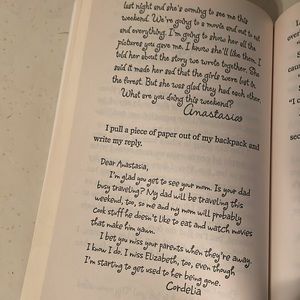 last night and she's coming to see me this
weekend. We're going to a movie and out to eat
and everything. I'm going to show her all the
pictures you gave me. I know she'll like them. I
told her about the story we wrote together. She
said it made her sad that the girls were lost in
the forest. But she was glad they had each other.
What are you doing this weekend?
Anastasia
I pull a piece of paper out of my backpack and
write my reply.
Dear Anastasia,
I'm glad you get to see your mom. Is your dad
busy traveling? My dad will be traveling this
weekend, too, so me and my mom will probably
cook stuff he doesn't like to eat and watch movies
that make him yawn.
I bet you miss your parents when they're away.
I know I do. I miss Elizabeth, too, even though
I'm starting to get used to her being gone.
Cordelia